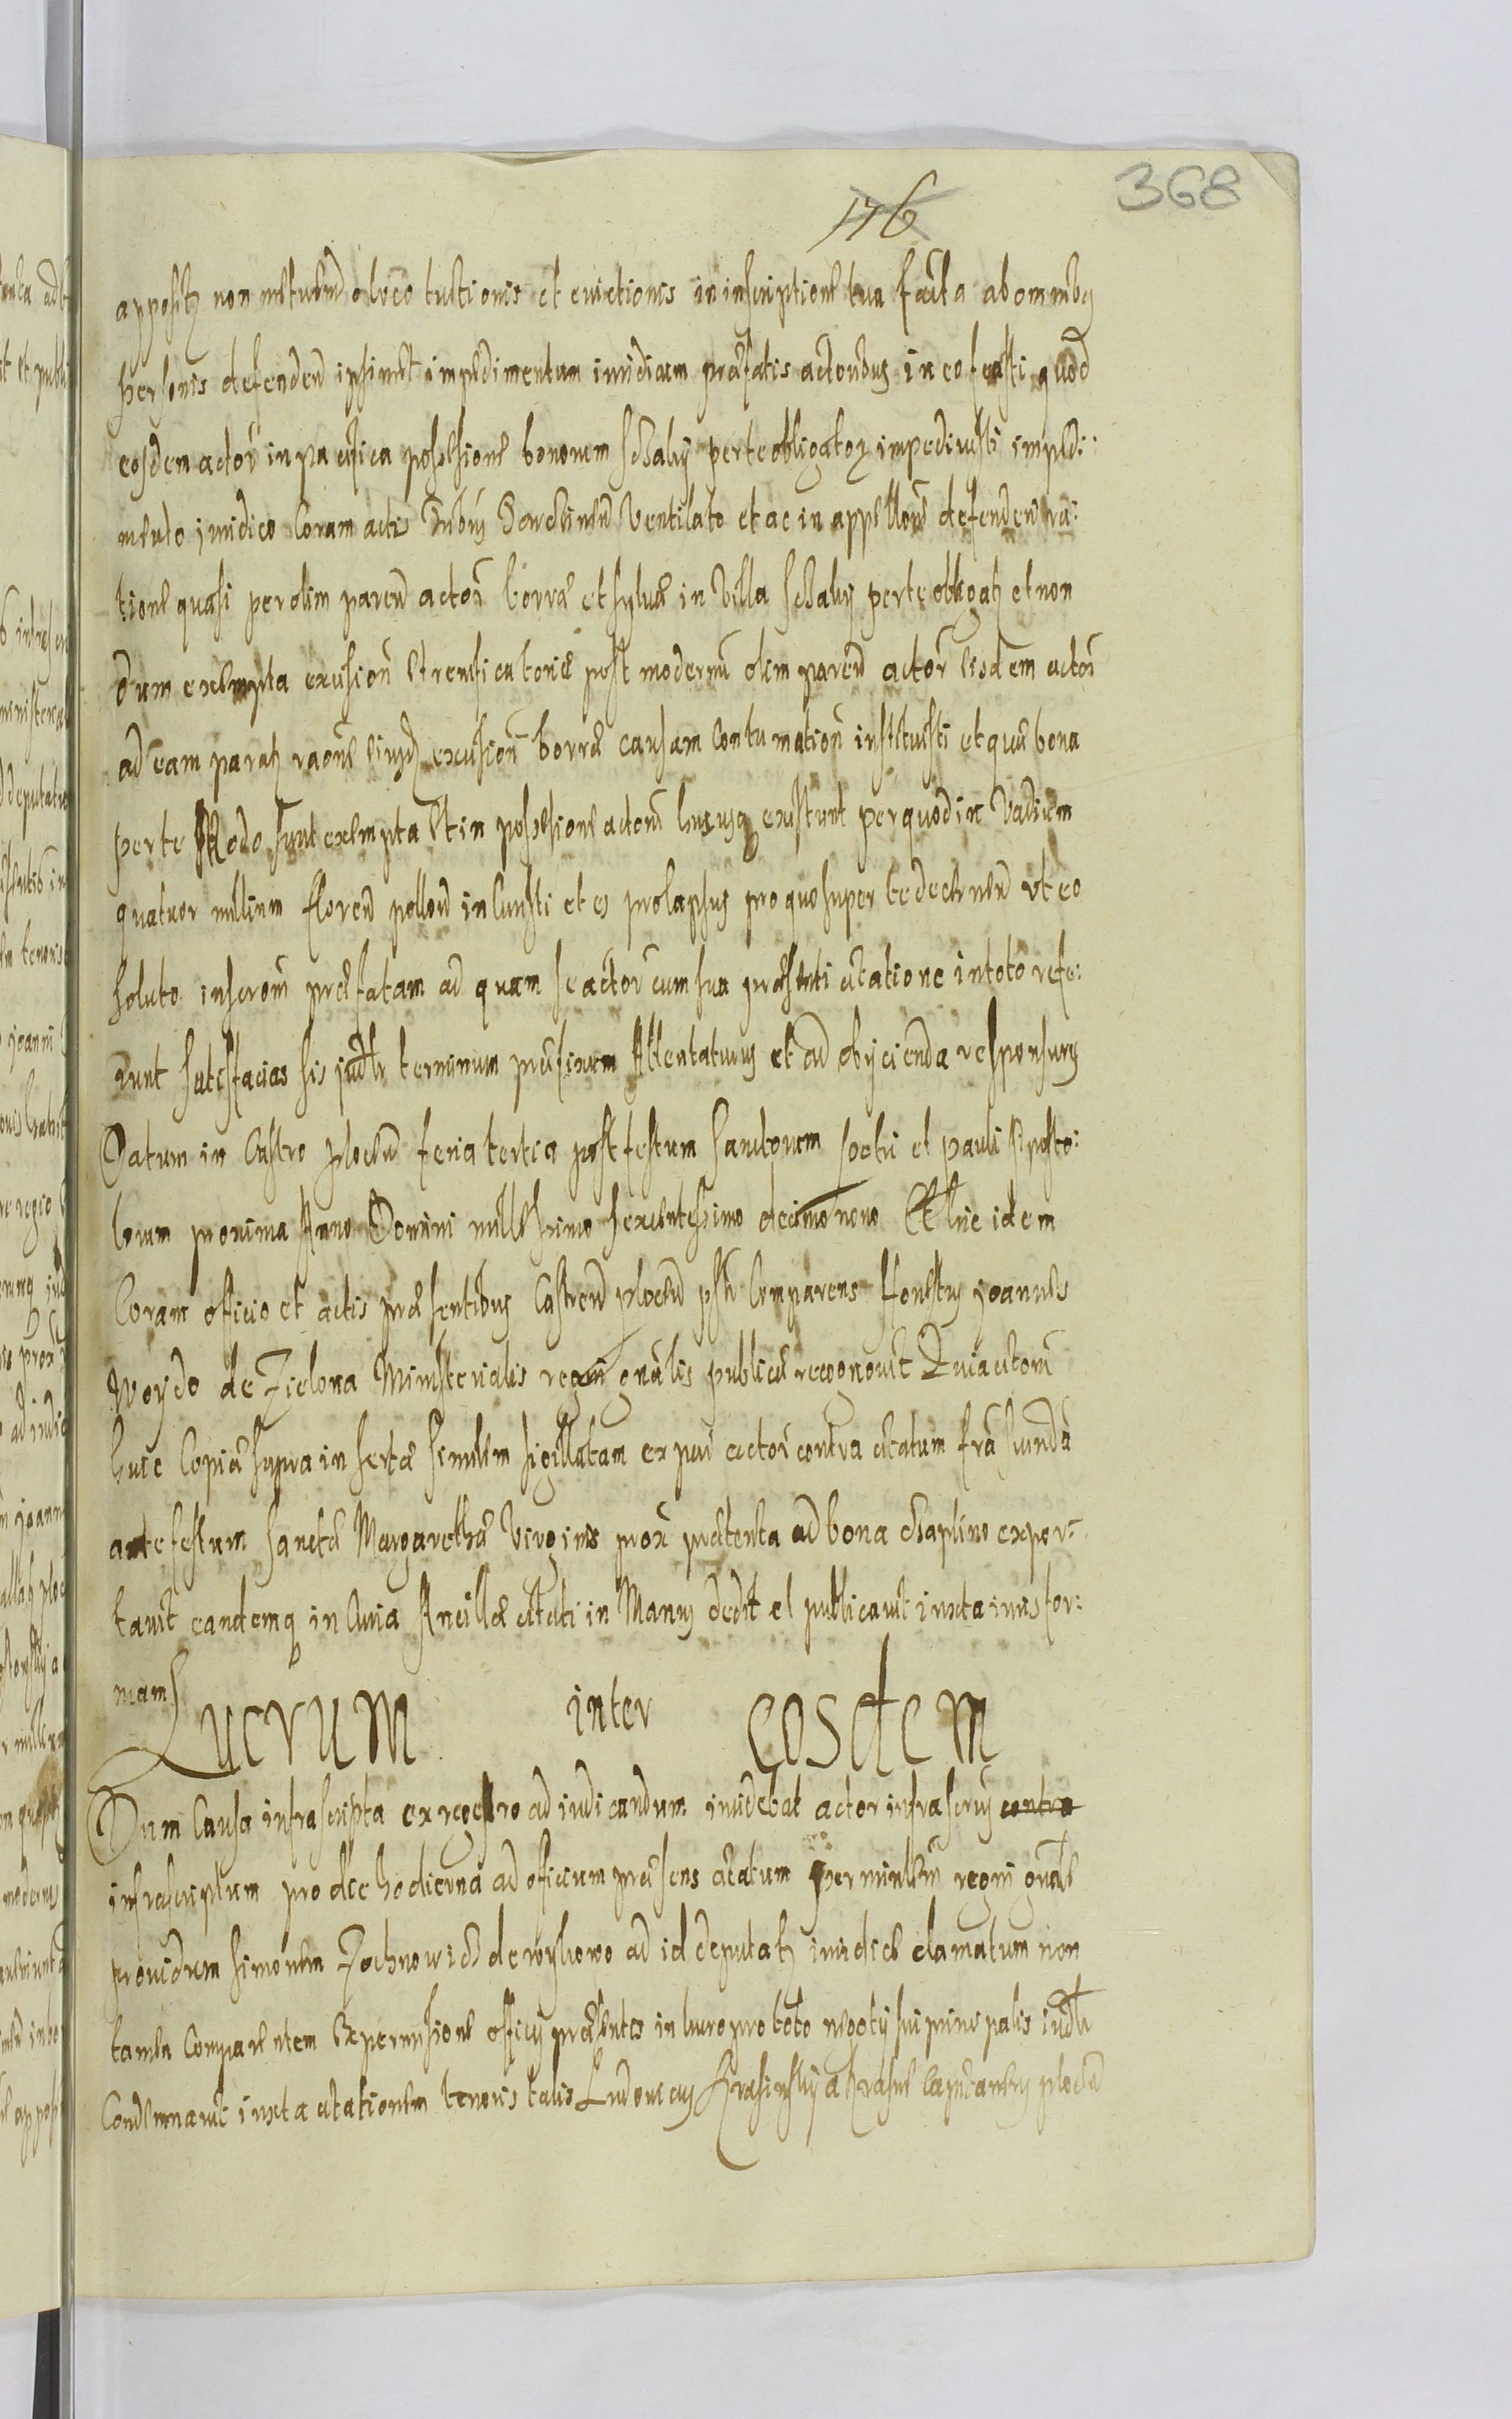 368
176
appositz non metuend oluco tuitionis et euictionis in inscriptione tua facta ab omnibq
personis defendend ipsimet impedimentum iuridicum præfatis actoribus in eo fecisti quod
eosdem actor in pacifica possessione bonorum per te obligatoz impediuisti impedi:
mento iuridico Coram actis ventilato et ac in appellone defendend ra:
tione quasi per olim parend actor borræ et syluæ in Villa per te obligatz et non
dum exempta excision post modernu olim parend actor eisdem actor
ad eam paratz raone eiusdz excision borræ causam Contumation instituisti et quæ bona
per te Modo sunt exempta et in possessione actoru hucusq existunt per quod in Vadium
quatuor millium floren pollon incursti et es prolapsus pro quo super te decernend vt eo
soluto inscrom præfatam ad quam se actor cum sua præsenti citatione in toto refe:
runt satisfacias sis iudtr terminum præfixum Attentaturus et ad obijcienda responsurus
Datum in Castro plocen feria tertia post festum Sanctorum petri et pauli Aposto:
lorum proxima Anno Domini millesimo sexcentesimo decimo nono Et hic idem
Coram officio et actis præsentibus Castren plocen pstr Comparens Honestus Joannes
Woydo de Zielona Ministerialis regni gnalis publice recognouit Quia citom
huic Copiæ supra insertæ similem sigillatam ex par actor contra citatum fra secunda
ante festum Sanctæ Margarethæ Virginis prox præterita ad bona Chaplino expor:
tauit eandemq in Curia Ancillæ citati in Manus dedit et publicauit iuxta iuris for:
mam
Lucrum inter eosdem
Dum Causa infrascripta ex regestro ad iudicandum incidebat actor infrascrus contra
infrascriptum pro die hodierna ad officium præsens citatum per minlem regni gnale
prouidum Simonem Zochnowicz de ad id deputatz iuridice clamatum non
tamen Comparentem Ex permissione officij præsentis in lucro pro toto negoty sui principalis iudtr
Condemnauit iuxta citationem tenoris talis Ludouicus Krasinsky a Krasne Capitaneus plocen